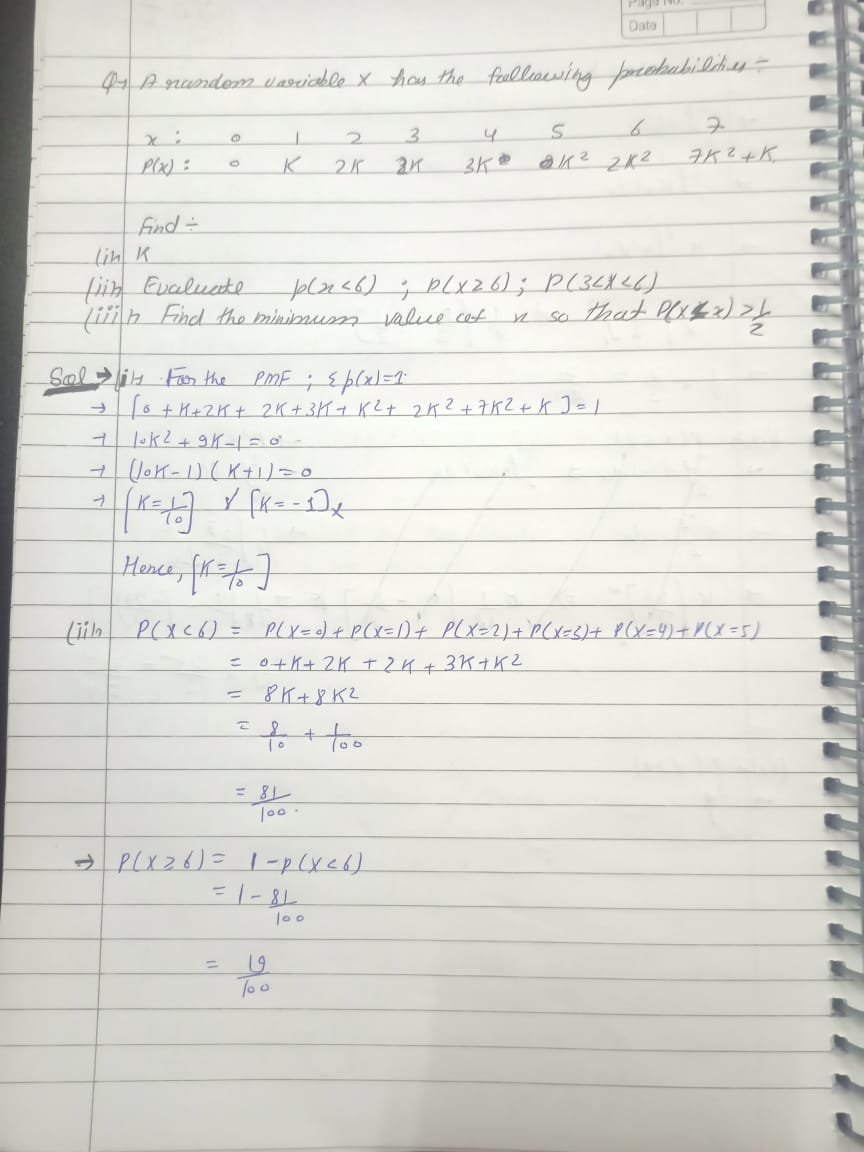 Page No.
Date
Q→ A random variable X has the following probabilities :-
x : 0 1 2 3 4 5 6 7
P(x) : 0 K 2K 2K 3K K² 2K² 7K²+K
Find ÷
(i) K
(ii) Evaluate p(x<6) ; P(X≥6) ; P(3<X<6)
(iii) Find the minimum value of x so that P(X≤x) > 1/2
Sol → (i) For the PMF ; Σp(x)=1
→ [0 + K+2K+ 2K+3K+ K²+ 2K²+7K²+K] = 1
→ 10K² + 9K-1 = 0
→ (10K-1) (K+1) = 0
→ [K=1/10] & [K=-1]x
Hence, [K=1/10]
(ii) P(X<6) = P(X=0)+P(X=1)+ P(X=2)+P(X=3)+ P(X=4)+P(X=5)
= 0+K+2K+2K+3K+K²
= 8K+8K²
= 8/10 + 1/100
= 81/100.
→ P(X≥6) = 1-p(X<6)
= 1-81/100
= 19/100